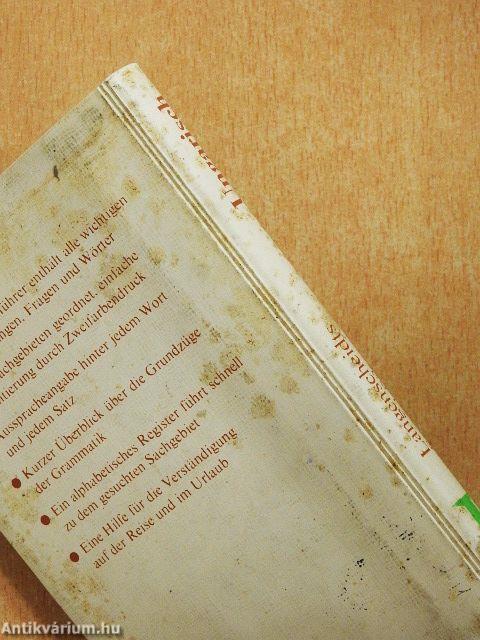 führer enthält alle wichtigen
ngen, Fragen und Wörter
achgebieten geordnet, einfache
ntierung durch Zweifarbendruck
Ausspracheangabe hinter jedem Wort
und jedem Satz
● Kurzer Überblick über die Grundzüge
der Grammatik
● Ein alphabetisches Register führt schnell
zu dem gesuchten Sachgebiet
● Eine Hilfe für die Verständigung
auf der Reise und im Urlaub
Ungarisch
Langenscheidts
Antikvárium.hu